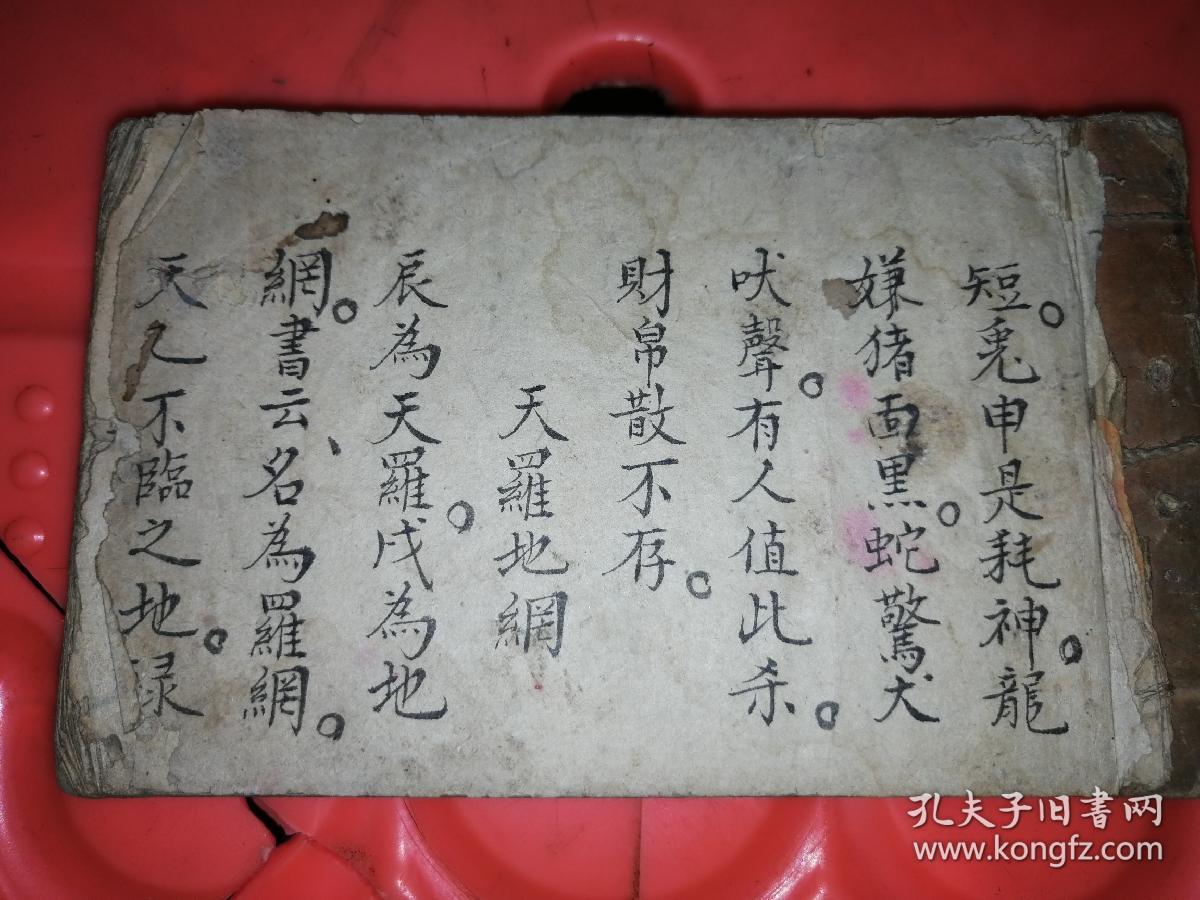 短。兎申是耗神。龍
嫌猪面黑。蛇驚犬
吠聲。有人值此杀。
財帛散不存。
天羅地網
辰為天羅。戌為地
網。書云、名為羅網。
天乙不臨之地。禄
孔夫子旧書网
www.kongfz.com